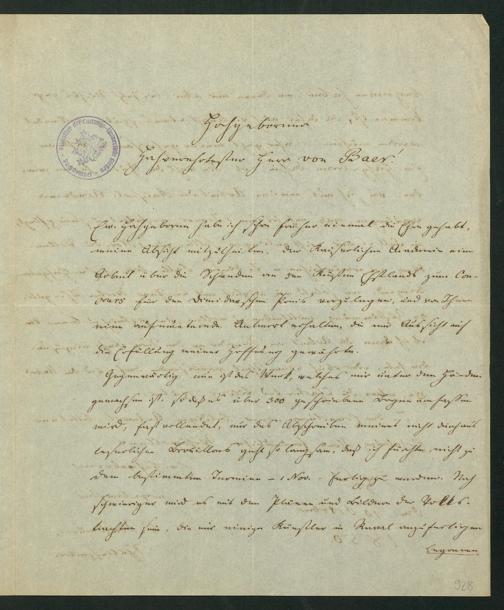 Hochgeborener
Hochverehrtester Herr von Baer!
Ew. Hochgeboren habe ich schon früher einmal die Ehre gehabt,
meine Absicht mitzutheilen, der Kaiserlichen Academie eine
Arbeit über die Schweden an den Küsten Ehstlands zum Con-
cours für den Demidowschen Preis vorzulegen, und von Ihnen
eine aufmunternde Antwort erhalten, die mir Aussicht auf
die Erfüllung meiner Hoffnung gewährte.
Gegenwärtig nun ist das Werk, welches mir unter den Händen
gewachsen ist, so daß es über 300 geschriebene Bogen umfassen
wird, fast vollendet, nur das Abschreiben meines nicht durchaus
leserlichen Brouillons geht so langsam, daß ich fürchte nicht zu
dem bestimmten Termine – 1 Nov. fertig zu werden. Noch
schwieriger wird es mit den Plänen und Bildern der Volks-
trachten sein, die mir einige Künstler in Reval anzufertigen
begonnen
928